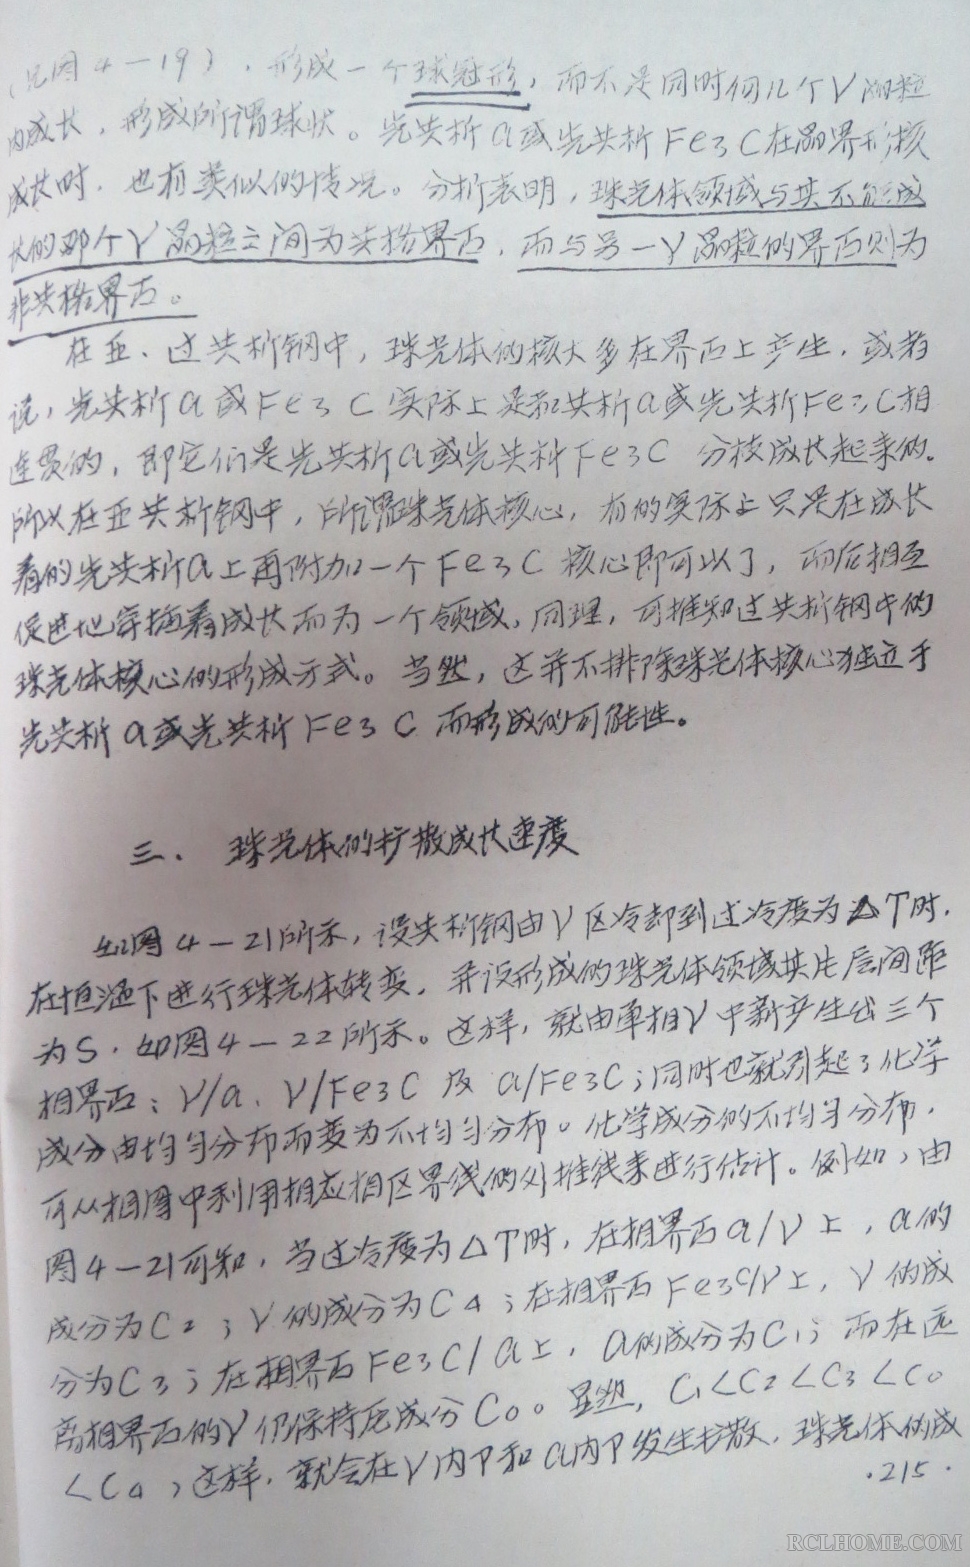 (见图4—19)，形成一个球冠形，而不是同时向几个γ晶粒
内成长，形成所谓球状。先共析α或先共析Fe3C在晶界形核
成长时，也有类似的情况。分析表明，珠光体领域与其不形成
长的那个γ晶粒之间为共格界面，而与另一γ晶粒的界面则为
非共格界面。
在亚、过共析钢中，珠光体的核大多在界面上产生，或者
说，先共析α或Fe3C实际上是和共析α或先共析Fe3C相
连贯的，即它们是先共析α或先共析Fe3C 分枝成长起来的。
所以在亚共析钢中，所谓珠光体核心，有的实际上只是在成长
着的先共析α上再附加一个Fe3C 核心即可以了，而后相互
促进地穿插着成长而为一个领域，同理，可推知过共析钢中的
珠光体核心的形成方式。当然，这并不排除珠光体核心独立于
先共析α或先共析Fe3C 而形成的可能性。
三． 珠光体的扩散成长速度
如图4—21所示，设共析钢由γ区冷却到过冷度为△T时，
在恒温下进行珠光体转变，并设形成的珠光体领域其片层间距
为S，如图4—22所示。这样，就由单相γ中新产生出三个
相界面：γ/α、γ/Fe3C 及 α/Fe3C；同时也就引起了化学
成分由均匀分布而变为不均匀分布。化学成分的不均匀分布，
可从相图中利用相应相区界线的外推线来进行估计。例如，由
图4—21可知，当过冷度为△T时，在相界面α/γ上，α的
成分为C2；γ的成分为C4；在相界面Fe3C/γ上，γ的成
分为C3；在相界面Fe3C/α上，α的成分为C1；而在远
离相界面的γ仍保持原成分C0。显然，C1<C2<C3<C0
<C4，这样，就会在γ内中和α内中发生扩散，珠光体的成
·215·
RCLHOME.COM